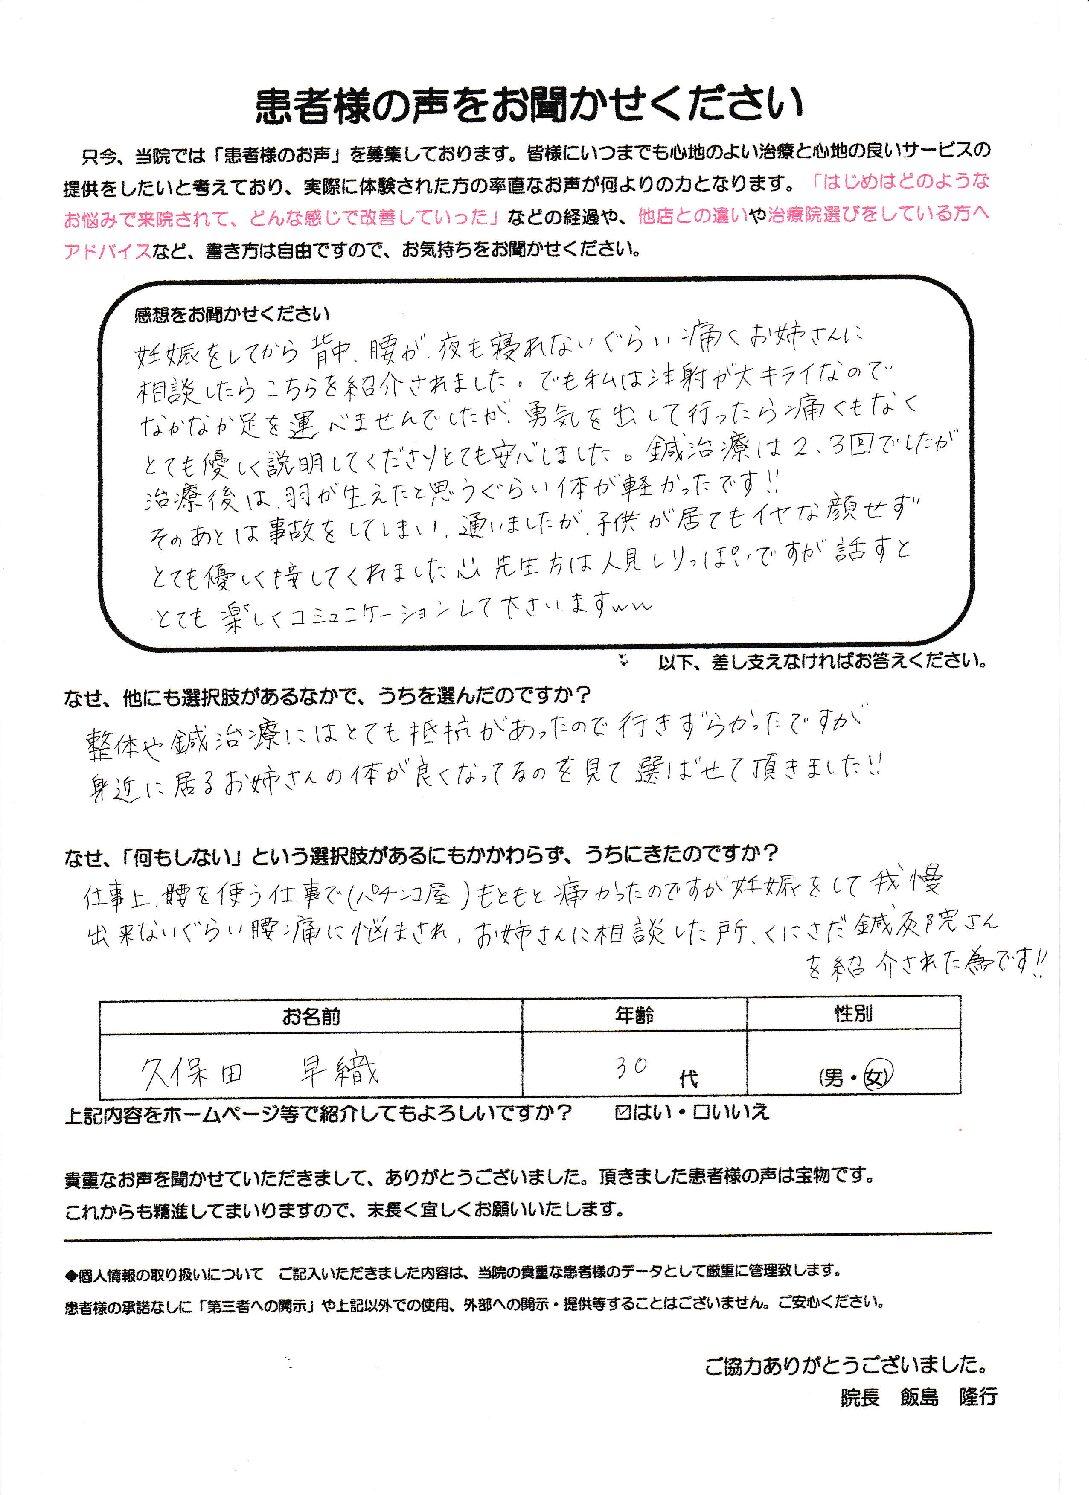 患者様の声をお聞かせください
只今、当院では「患者様のお声」を募集しております。皆様にいつまでも心地のよい治療と心地の良いサービスの
提供をしたいと考えており、実際に体験された方の率直なお声が何よりの力となります。「はじめはどのような
お悩みで来院されて、どんな感じで改善していった」などの経過や、他店との違いや治療院選びをしている方へ
アドバイスなど、書き方は自由ですので、お気持ちをお聞かせください。
感想をお聞かせください
妊娠をしてから背中、腰が、夜も寝れないぐらい痛くお姉さんに
相談したらこちらを紹介されました。でも私は注射が大キライなので
なかなか足を運べませんでしたが、勇気を出して行ったら痛くもなく
とても優しく説明してくださりとても安心しました。鍼治療は2、3回でしたが
治療後は、羽が生えたと思うぐらい体が軽かったです!!
そのあとは事故をしてしまい、通いましたが、子供が居てもイヤな顔せず
とても優しく接してくれました 先生方は人見しりっぽいですが話すと
とても楽しくコミュニケーションして下さいますww
以下、差し支えなければお答えください。
なぜ、他にも選択肢があるなかで、うちを選んだのですか?
整体や鍼治療にはとても抵抗があったので行きずらかったですが
身近に居るお姉さんの体が良くなってるのを見て選ばせて頂きました!!
なぜ、「何もしない」という選択肢があるにもかかわらず、うちにきたのですか?
仕事上、腰を使う仕事で(パチンコ屋)もともと痛かったのですが妊娠をして我慢
出来ないぐらい腰痛に悩まされ、お姉さんに相談した所、くにさだ鍼灸院さん
を紹介された為です!!
お名前 年齢 性別
久保田 早織 30代 (男・女)
上記内容をホームページ等で紹介してもよろしいですか? ☑はい・□いいえ
貴重なお声を聞かせていただきまして、ありがとうございました。頂きました患者様の声は宝物です。
これからも精進してまいりますので、末長く宜しくお願いいたします。
◆個人情報の取り扱いについて ご記入いただきました内容は、当院の貴重な患者様のデータとして厳重に管理致します。
患者様の承諾なしに「第三者への開示」や上記以外での使用、外部への開示・提供等することはございません。ご安心ください。
ご協力ありがとうございました。
院長 飯島 隆行